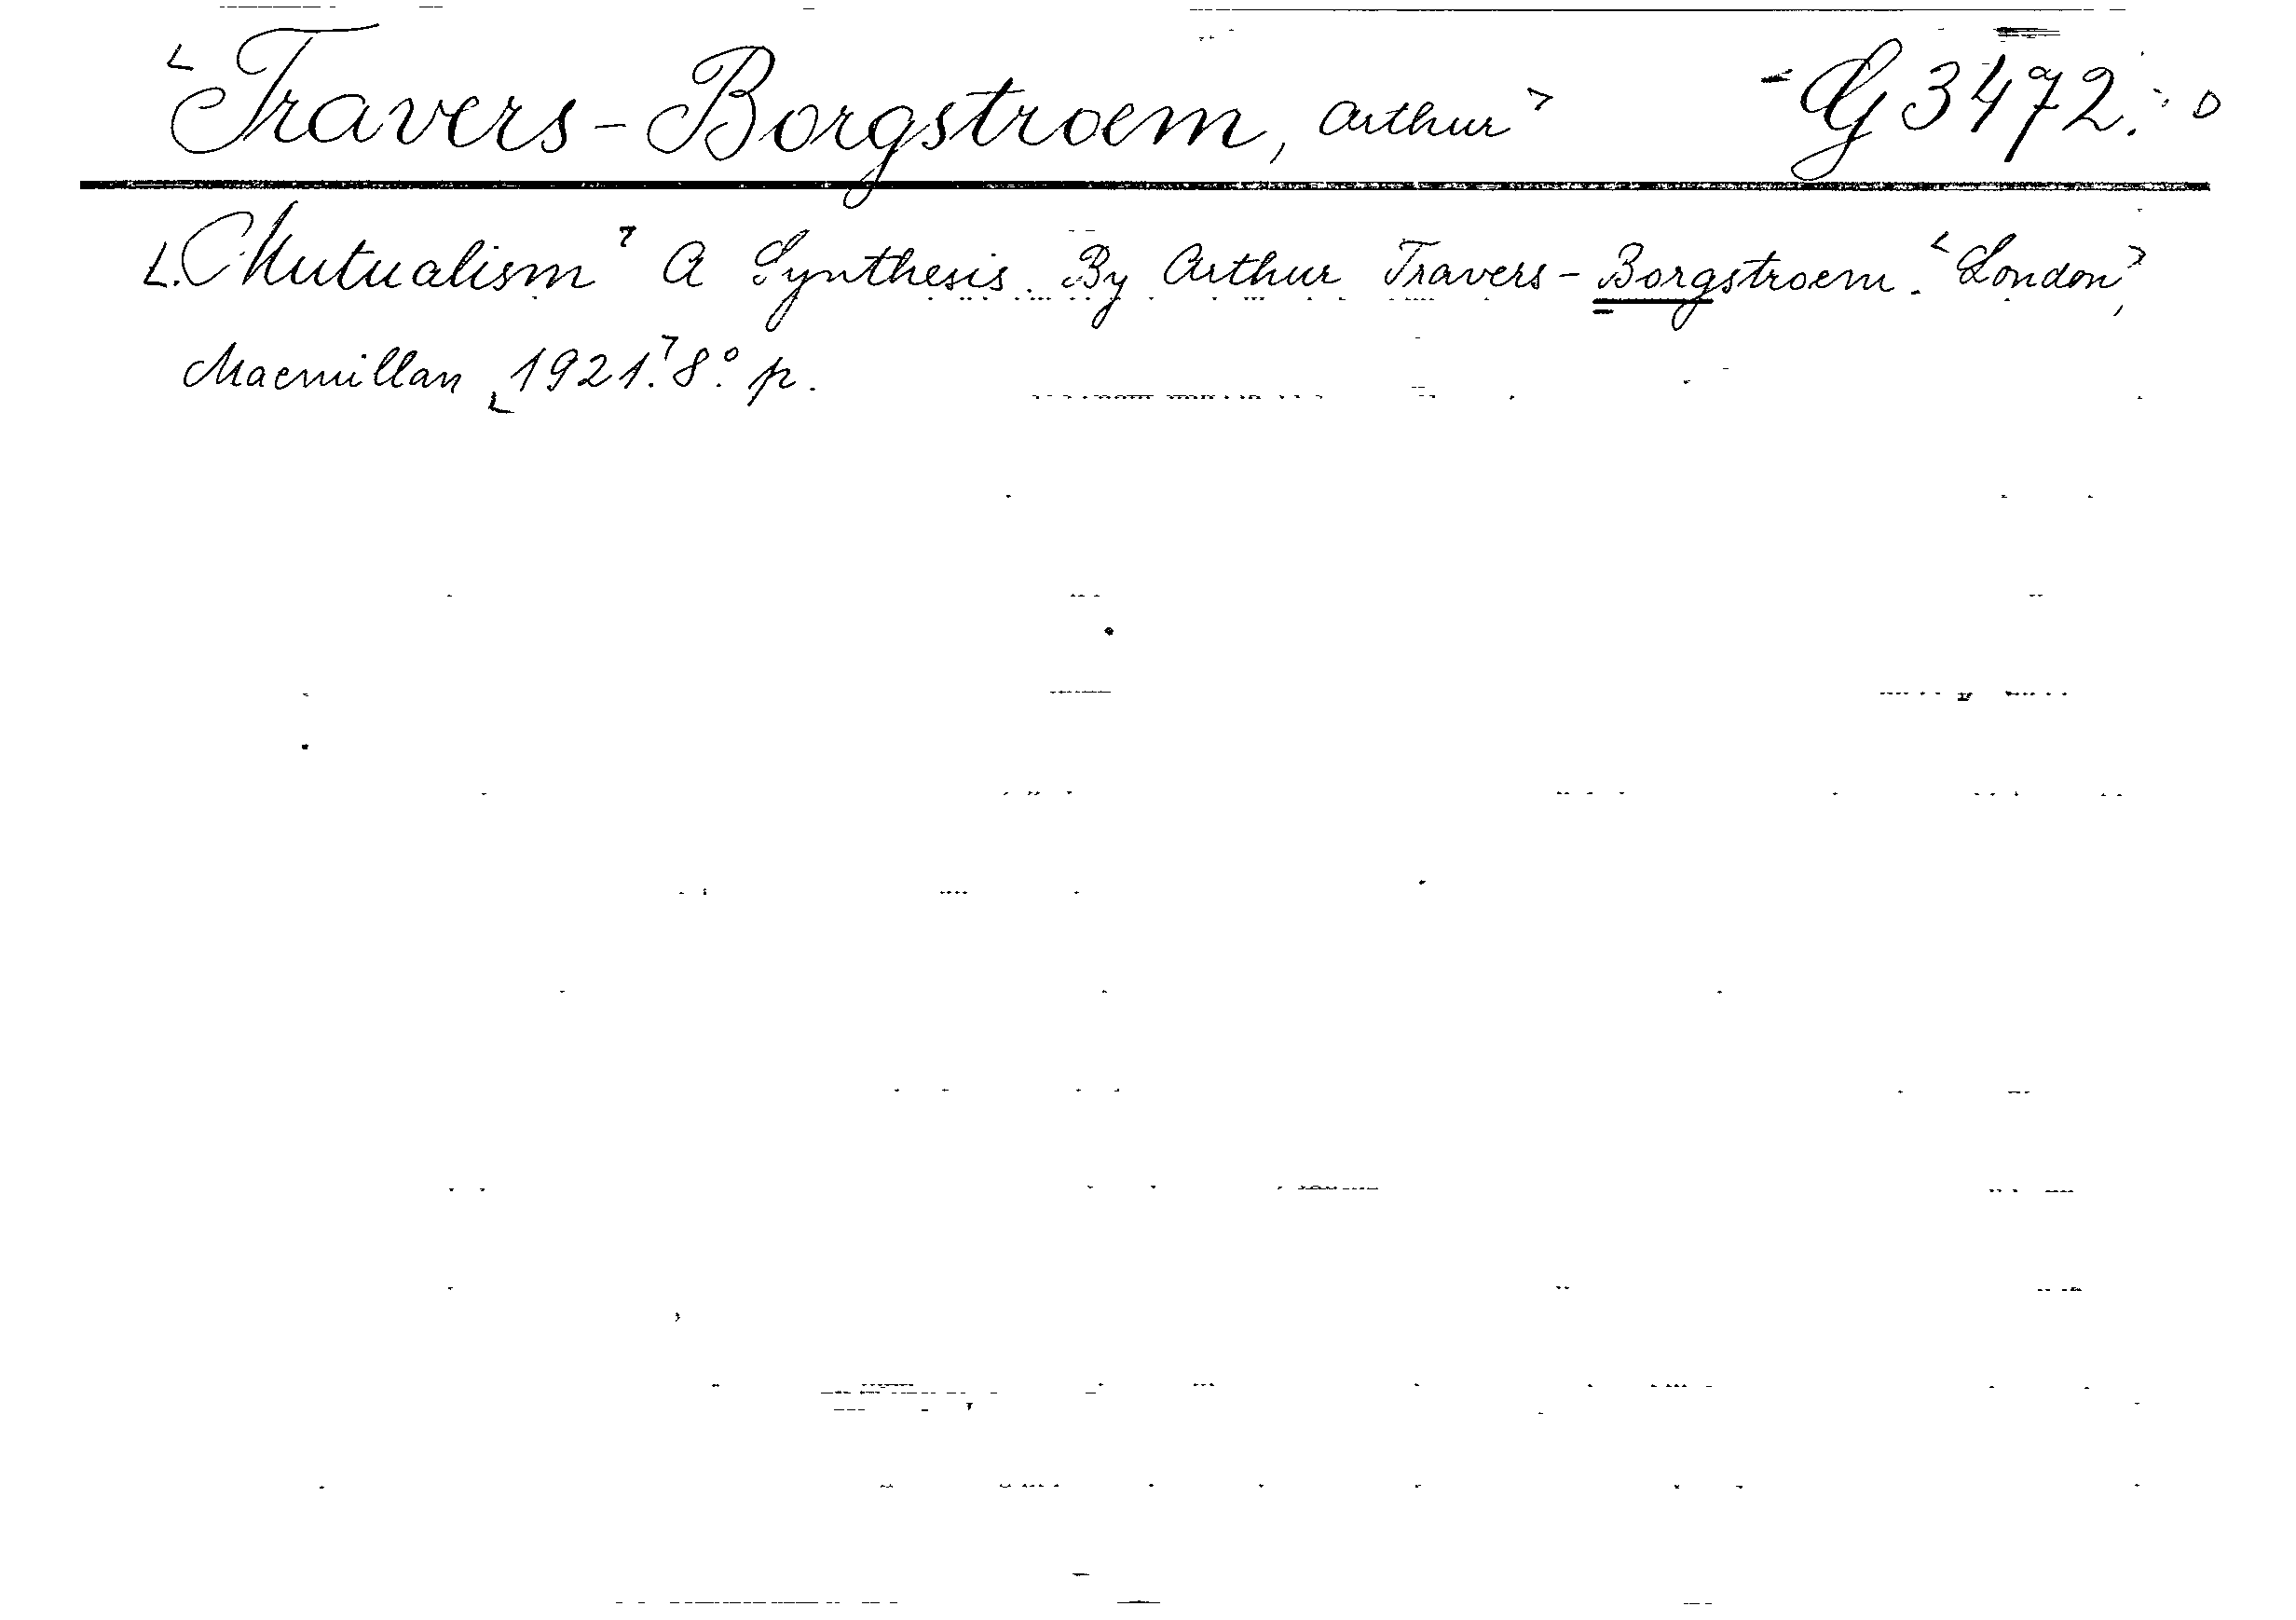 Travers-Borgstroem, Arthur G 3472.
Mutualism A Synthesis. By Arthur Travers-Borgstroem. London,
Macmillan 1921. 8° p.